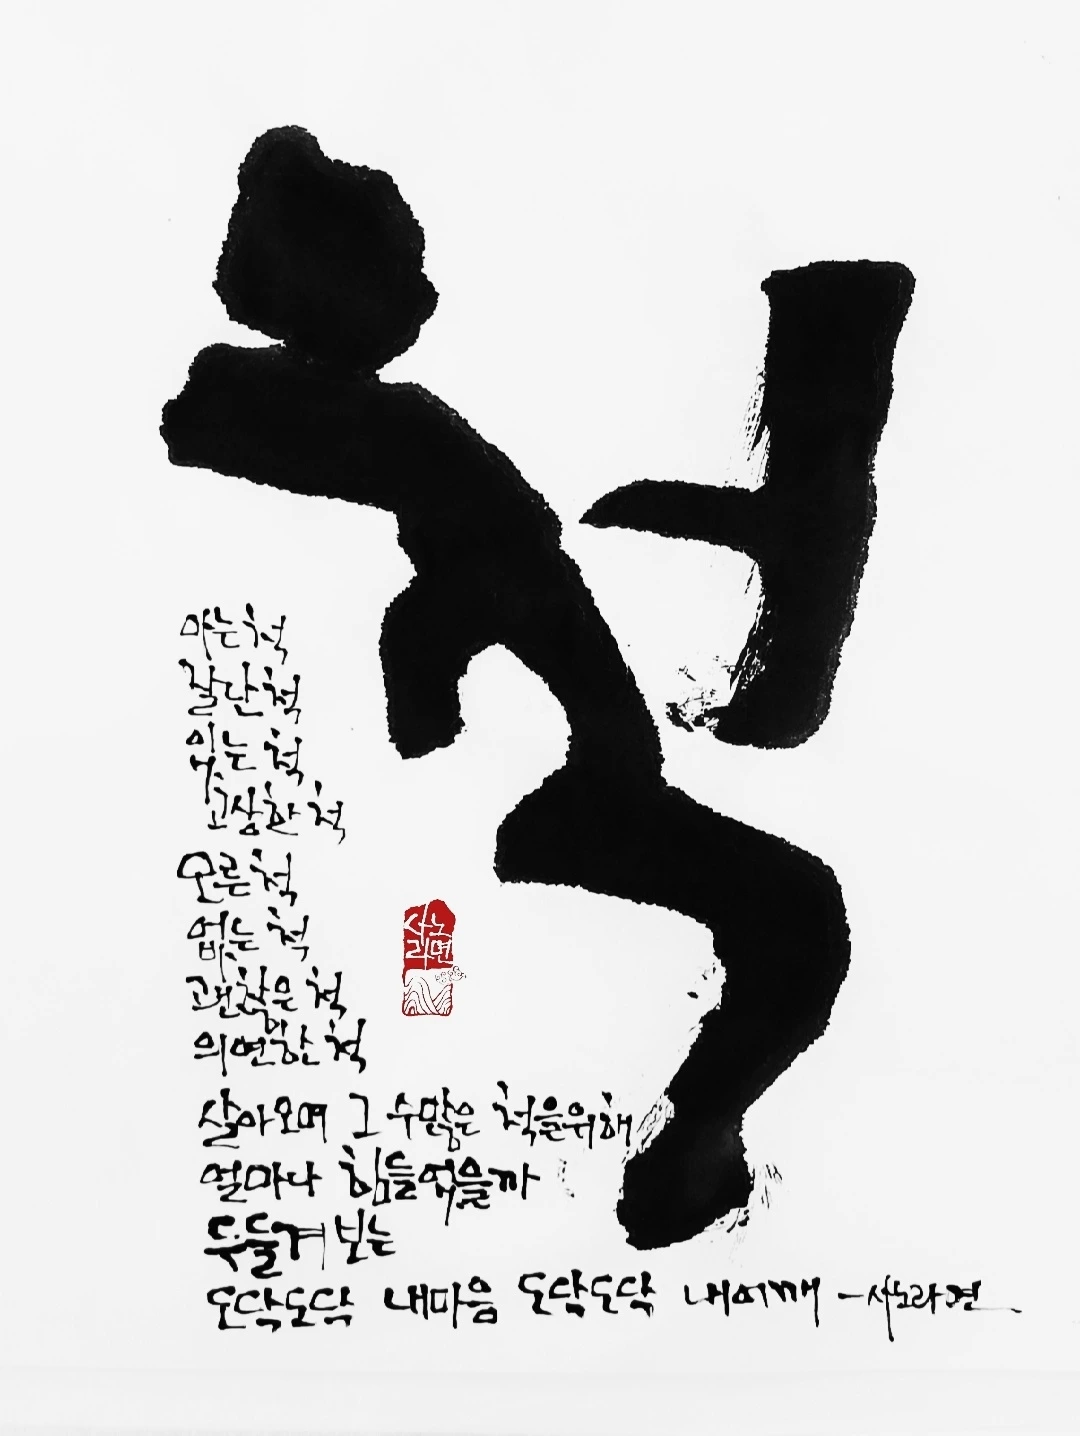 척
아는 척
잘난 척
있는 척
고상한 척
모른 척
없는 척
괜찮은 척
의연한 척
살아오며 그 수많은 척을 위해
얼마나 힘들었을까
두들겨 보는
도닥도닥 내마음 도닥도닥 내어깨 - 사노라면
사노
라면